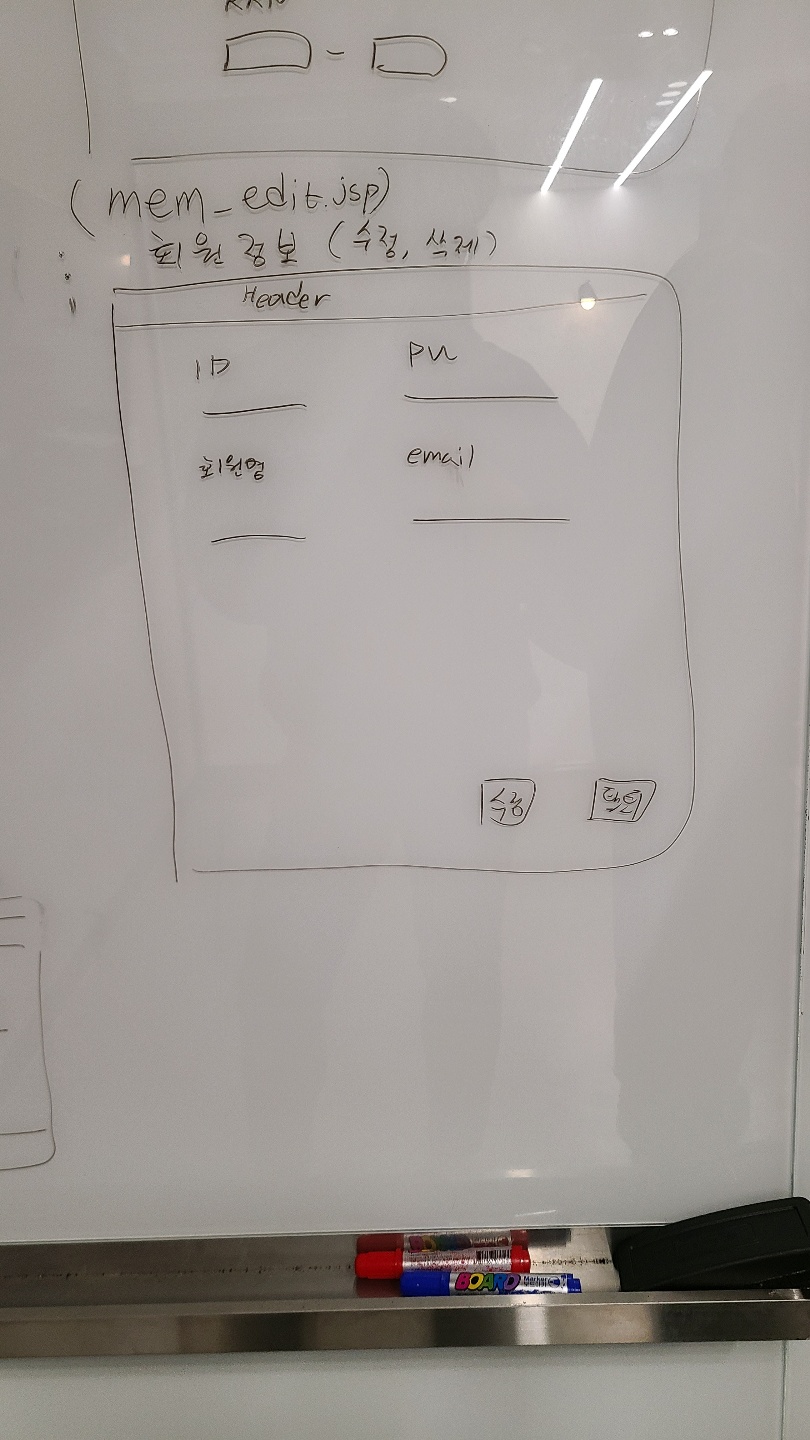 (mem_edit.jsp)
회원 정보 (수정, 삭제)
Header
ID PW
회원명 email
수정 탈퇴
BOARD Marker